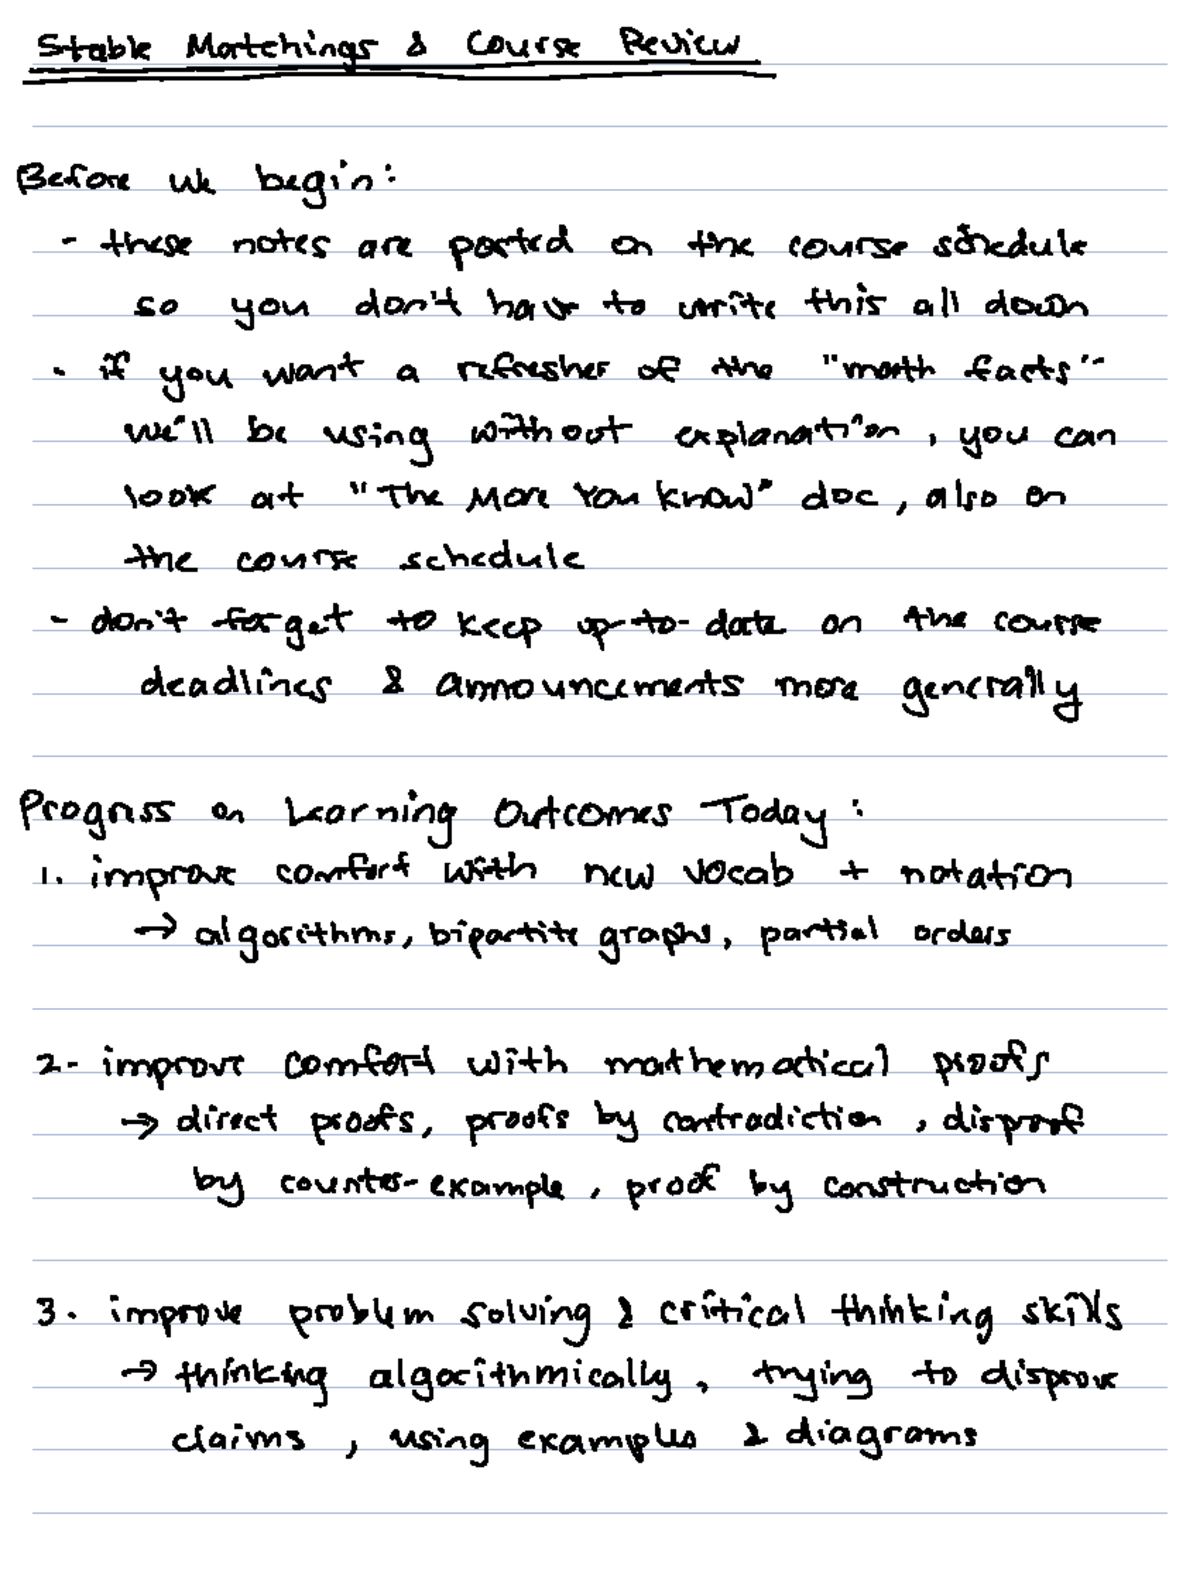 Stable Matchings & Course Review
Before we begin:
- these notes are posted on the course schedule
so you don't have to write this all down
- if you want a refresher of the "math facts"
we'll be using without explanation, you can
look at "The More You Know" doc, also on
the course schedule
- don't forget to keep up-to-date on the course
deadlines & announcements more generally
Progress on Learning Outcomes Today:
1. improve comfort with new vocab + notation
→ algorithms, bipartite graphs, partial orders
2. improve comfort with mathematical proofs
→ direct proofs, proofs by contradiction, disproof
by counter-example, proof by construction
3. improve problem solving & critical thinking skills
→ thinking algorithmically, trying to disprove
claims, using examples & diagrams